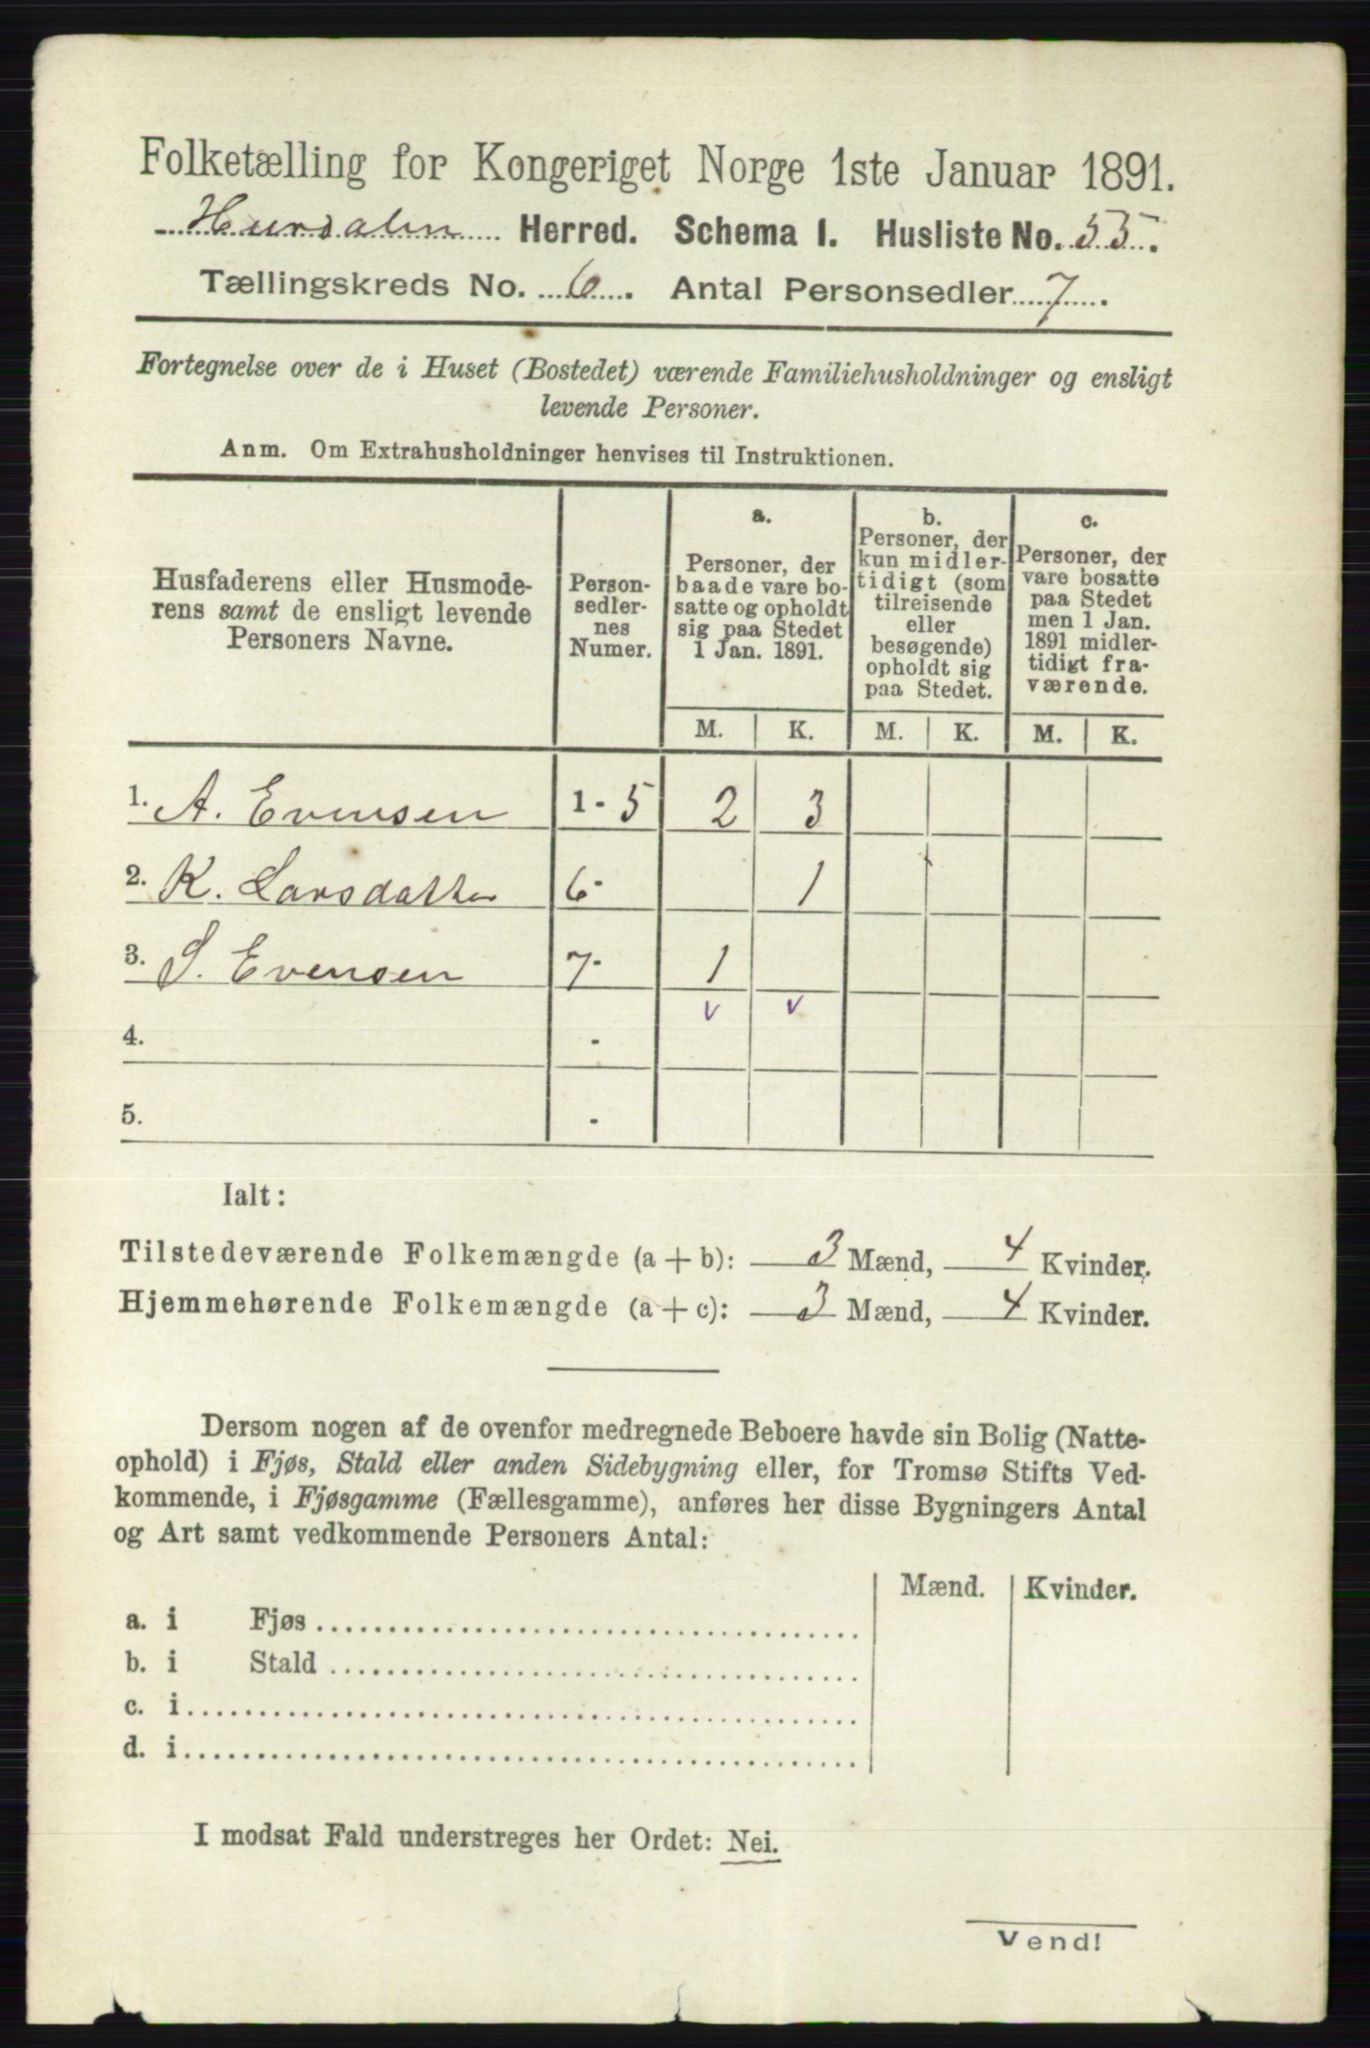 Folketælling for Kongeriget Norge 1ste Januar 1891.
Hurdalen Herred. Schema 1. Husliste No. 55.
Tællingskreds No. 6. Antal Personsedler 7.
Fortegnelse over de i Huset (Bostedet) værende Familiehusholdninger og ensligt
levende Personer.
Anm. Om Extrahusholdninger henvises til Instruktionen.
Husfaderens eller Husmode-
rens samt de ensligt levende
Personers Navne.
Person-
sedler-
nes
Numer.
a.
Personer, der
baade vare bo-
satte og opholdt
sig paa Stedet
1 Jan. 1891.
b.
Personer, der
kun midler-
tidigt (som
tilreisende
eller
besøgende)
opholdt sig
paa Stedet.
c.
Personer, der
vare bosatte
paa Stedet
men 1 Jan.
1891 midler-
tidigt fra-
værende.
M. K. M. K. M. K.
1. A. Evensen 1 - 5 2 3
2. K. Larsdatter 6 - 1
3. S. Evensen 7 - 1
v v
4. -
5. -
Ialt:
Tilstedeværende Folkemængde (a + b): 3 Mænd, 4 Kvinder.
Hjemmehørende Folkemængde (a + c): 3 Mænd, 4 Kvinder.
Dersom nogen af de ovenfor medregnede Beboere havde sin Bolig (Natte-
ophold) i Fjøs, Stald eller anden Sidebygning eller, for Tromsø Stifts Ved-
kommende, i Fjøsgamme (Fællesgamme), anføres her disse Bygningers Antal
og Art samt vedkommende Personers Antal:
Mænd. Kvinder.
a. i Fjøs
b. i Stald
c. i
d. i
I modsat Fald understreges her Ordet: Nei.
Vend!